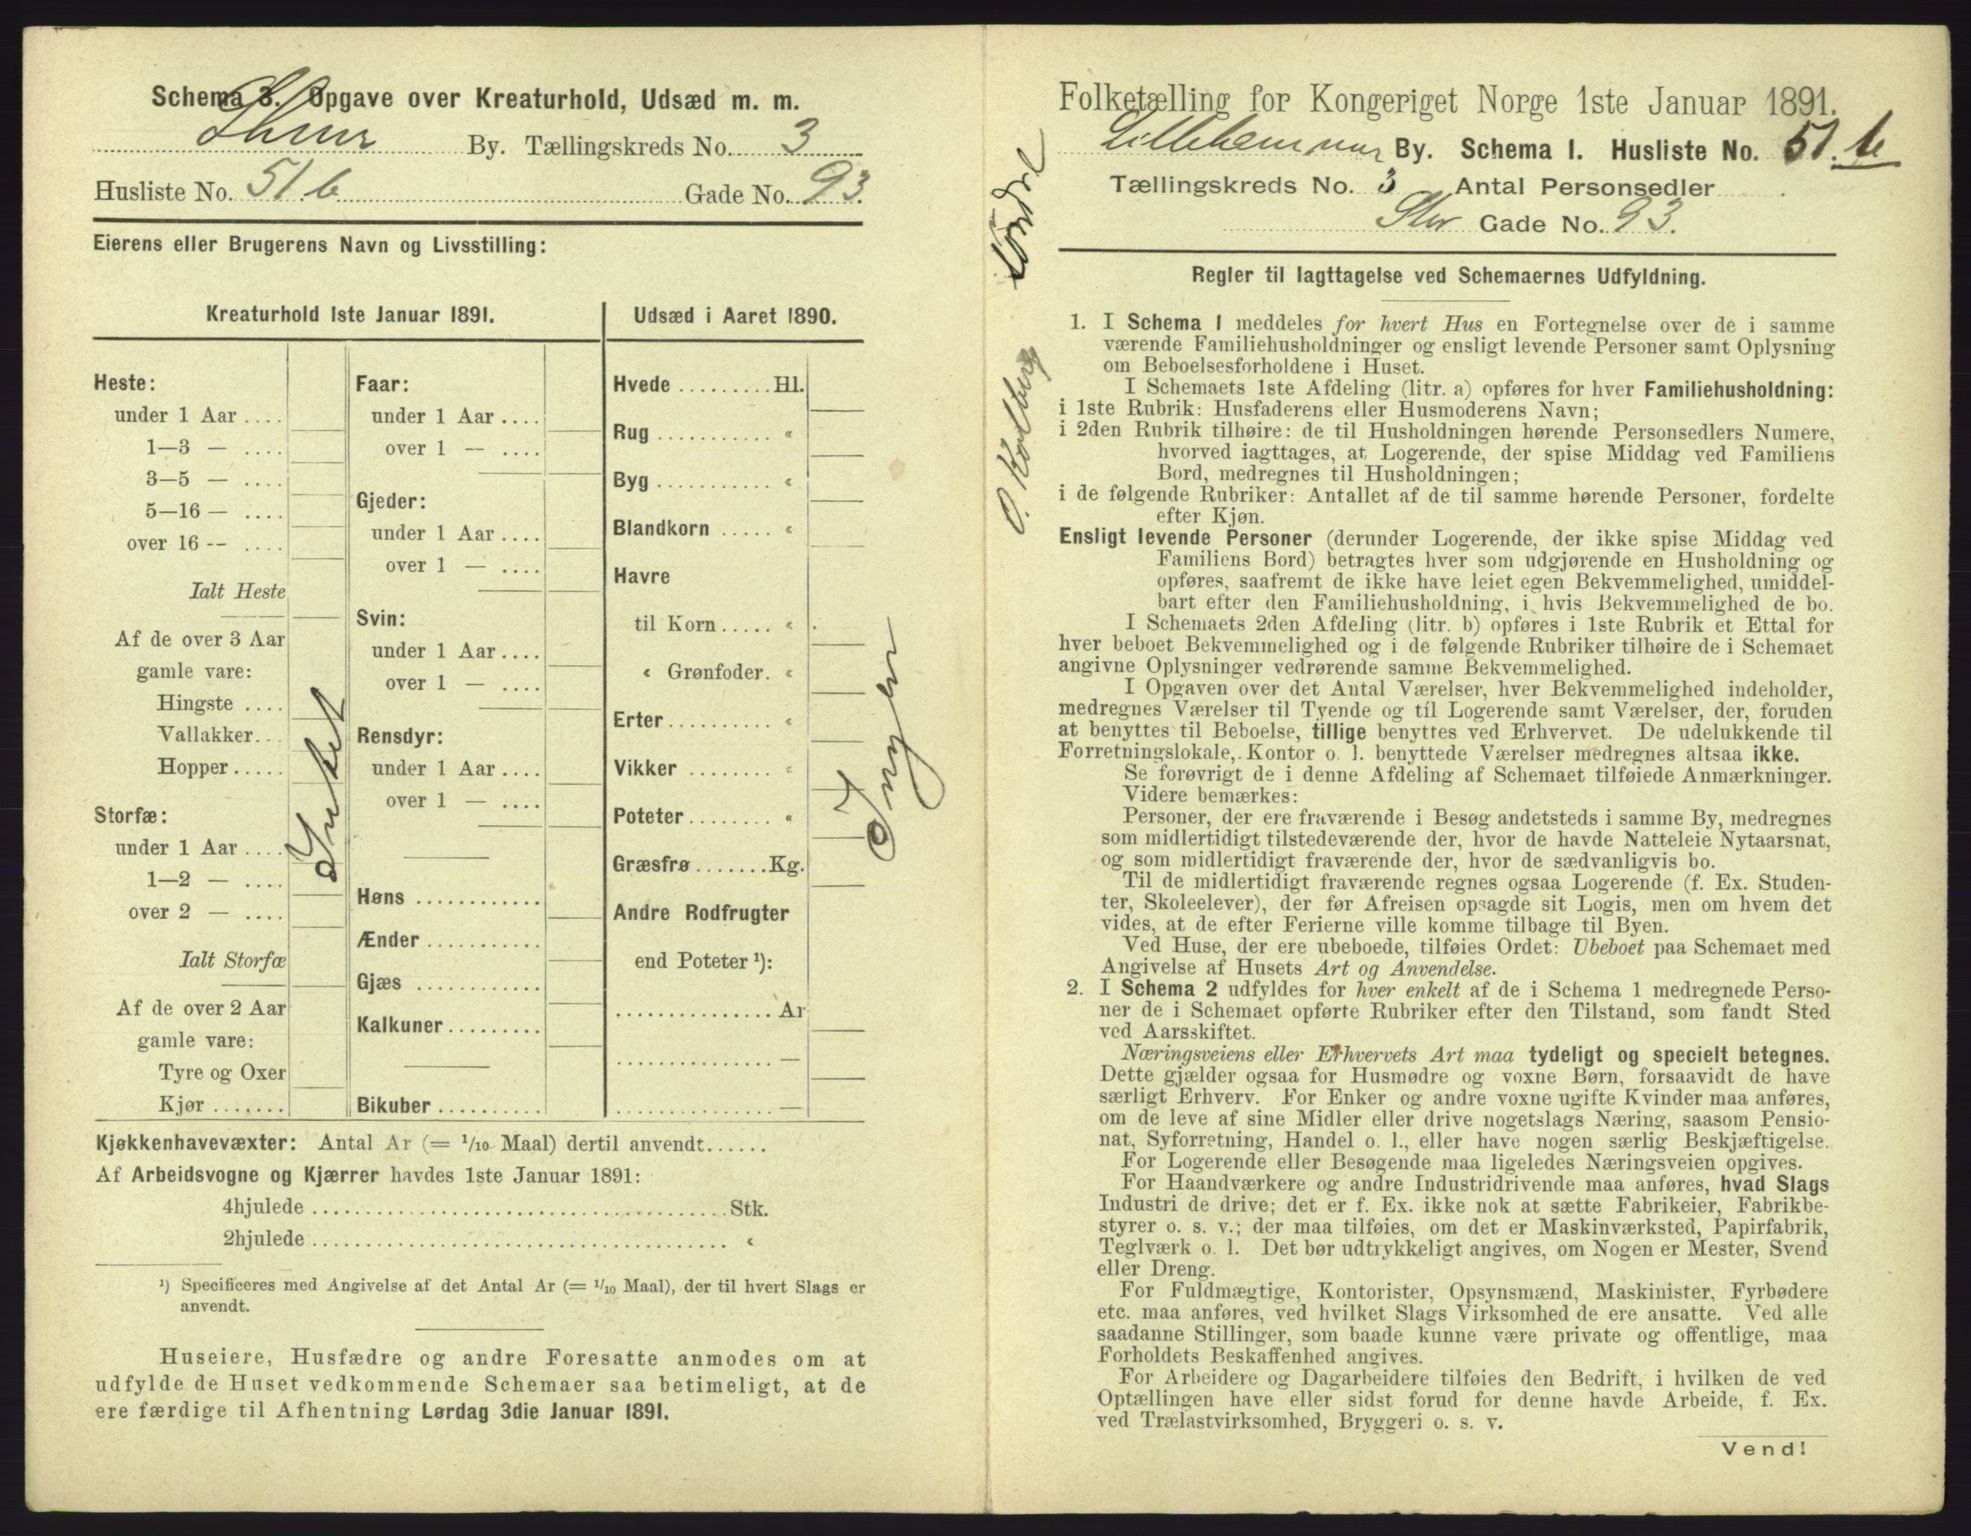 Schema 3. Opgave over Kreaturhold, Udsæd m. m.
By. Tællingskreds No. 3
Husliste No. 51 b Gade No. 93.
Eierens eller Brugerens Navn og Livsstilling:
Kreaturhold 1ste Januar 1891.
Heste:
under 1 Aar ....
1—3 — ....
3—5 — ....
5—16 — ....
over 16 -- ....
Ialt Heste
Af de over 3 Aar
gamle vare:
Hingste ....
Vallakker...
Hopper.....
Storfæ:
under 1 Aar ....
1—2 — ....
over 2 — ....
Ialt Storfæ
Af de over 2 Aar
gamle vare:
Tyre og Oxer
Kjør .......
Intet
Faar:
under 1 Aar ....
over 1 — ....
Gjeder:
under 1 Aar ....
over 1 — ....
Svin:
under 1 Aar ....
over 1 — ....
Rensdyr:
under 1 Aar ....
over 1 — ....
Høns ............
Ænder ...........
Gjæs ............
Kalkuner.........
Bikuber ..........
Udsæd i Aaret 1890.
Hvede .........Hl.
Rug ........... «
Byg ........... «
Blandkorn ..... «
Havre
til Korn ..... «
« Grønfoder. «
Erter .......... «
Vikker ......... «
Poteter ........ «
Græsfrø .......Kg.
Andre Rodfrugter
end Poteter ¹):
............... Ar
............... —
............... —
Ingen
Kjøkkenhavevæxter: Antal Ar (= 1/10 Maal) dertil anvendt......
Af Arbeidsvogne og Kjærrer havdes 1ste Januar 1891:
4hjulede ........................................ Stk.
2hjulede ........................................ «
¹) Specificeres med Angivelse af det Antal Ar (= 1/10 Maal), der til hvert Slags er
anvendt.
Huseiere, Husfædre og andre Foresatte anmodes om at
udfylde de Huset vedkommende Schemaer saa betimeligt, at de
ere færdige til Afhentning Lørdag 3die Januar 1891.
Folketælling for Kongeriget Norge 1ste Januar 1891.
Lillehammer By. Schema I. Husliste No. 51. b
Tællingskreds No. 3 Antal Personsedler
Stor Gade No. 93.
Regler til Iagttagelse ved Schemaernes Udfyldning.
1. I Schema 1 meddeles for hvert Hus en Fortegnelse over de i samme
værende Familiehusholdninger og ensligt levende Personer samt Oplysning
om Beboelsesforholdene i Huset.
I Schemaets 1ste Afdeling (litr. a) opføres for hver Familiehusholdning:
i 1ste Rubrik: Husfaderens eller Husmoderens Navn;
i 2den Rubrik tilhøire: de til Husholdningen hørende Personsedlers Numere,
hvorved iagttages, at Logerende, der spise Middag ved Familiens
Bord, medregnes til Husholdningen;
i de følgende Rubriker: Antallet af de til samme hørende Personer, fordelte
efter Kjøn.
Ensligt levende Personer (derunder Logerende, der ikke spise Middag ved
Familiens Bord) betragtes hver som udgjørende en Husholdning og
opføres, saafremt de ikke have leiet egen Bekvemmelighed, umiddel-
bart efter den Familiehusholdning, i hvis Bekvemmelighed de bo.
I Schemaets 2den Afdeling (litr. b) opføres i 1ste Rubrik et Ettal for
hver beboet Bekvemmelighed og i de følgende Rubriker tilhøire de i Schemaet
angivne Oplysninger vedrørende samme Bekvemmelighed.
I Opgaven over det Antal Værelser, hver Bekvemmelighed indeholder,
medregnes Værelser til Tyende og til Logerende samt Værelser, der, foruden
at benyttes til Beboelse, tillige benyttes ved Erhvervet. De udelukkende til
Forretningslokale, Kontor o. l. benyttede Værelser medregnes altsaa ikke.
Se forøvrigt de i denne Afdeling af Schemaet tilføiede Anmærkninger.
Videre bemærkes:
Personer, der ere fraværende i Besøg andetsteds i samme By, medregnes
som midlertidigt tilstedeværende der, hvor de havde Natteleie Nytaarsnat,
og som midlertidigt fraværende der, hvor de sædvanligvis bo.
Til de midlertidigt fraværende regnes ogsaa Logerende (f. Ex. Studen-
ter, Skoleelever), der før Afreisen opsagde sit Logis, men om hvem det
vides, at de efter Ferierne ville komme tilbage til Byen.
Ved Huse, der ere ubeboede, tilføies Ordet: Ubeboet paa Schemaet med
Angivelse af Husets Art og Anvendelse.
2. I Schema 2 udfyldes for hver enkelt af de i Schema 1 medregnede Perso-
ner de i Schemaet opførte Rubriker efter den Tilstand, som fandt Sted
ved Aarsskiftet.
Næringsveiens eller Erhvervets Art maa tydeligt og specielt betegnes.
Dette gjælder ogsaa for Husmødre og voxne Børn, forsaavidt de have
særligt Erhverv. For Enker og andre voxne ugifte Kvinder maa anføres,
om de leve af sine Midler eller drive nogetslags Næring, saasom Pensio-
nat, Syforretning, Handel o. l., eller have nogen særlig Beskjæftigelse.
For Logerende eller Besøgende maa ligeledes Næringsveien opgives.
For Haandværkere og andre Industridrivende maa anføres, hvad Slags
Industri de drive; det er f. Ex. ikke nok at sætte Fabrikeier, Fabrikbe-
styrer o. s. v.; der maa tilføies, om det er Maskinværksted, Papirfabrik,
Teglværk o. l. Det bør udtrykkeligt angives, om Nogen er Mester, Svend
eller Dreng.
For Fuldmægtige, Kontorister, Opsynsmænd, Maskinister, Fyrbødere
etc. maa anføres, ved hvilket Slags Virksomhed de ere ansatte. Ved alle
saadanne Stillinger, som baade kunne være private og offentlige, maa
Forholdets Beskaffenhed angives.
For Arbeidere og Dagarbeidere tilføies den Bedrift, i hvilken de ved
Optællingen have eller sidst forud for denne havde Arbeide, f. Ex.
ved Trælastvirksomhed, Bryggeri o. s. v.
Vend!